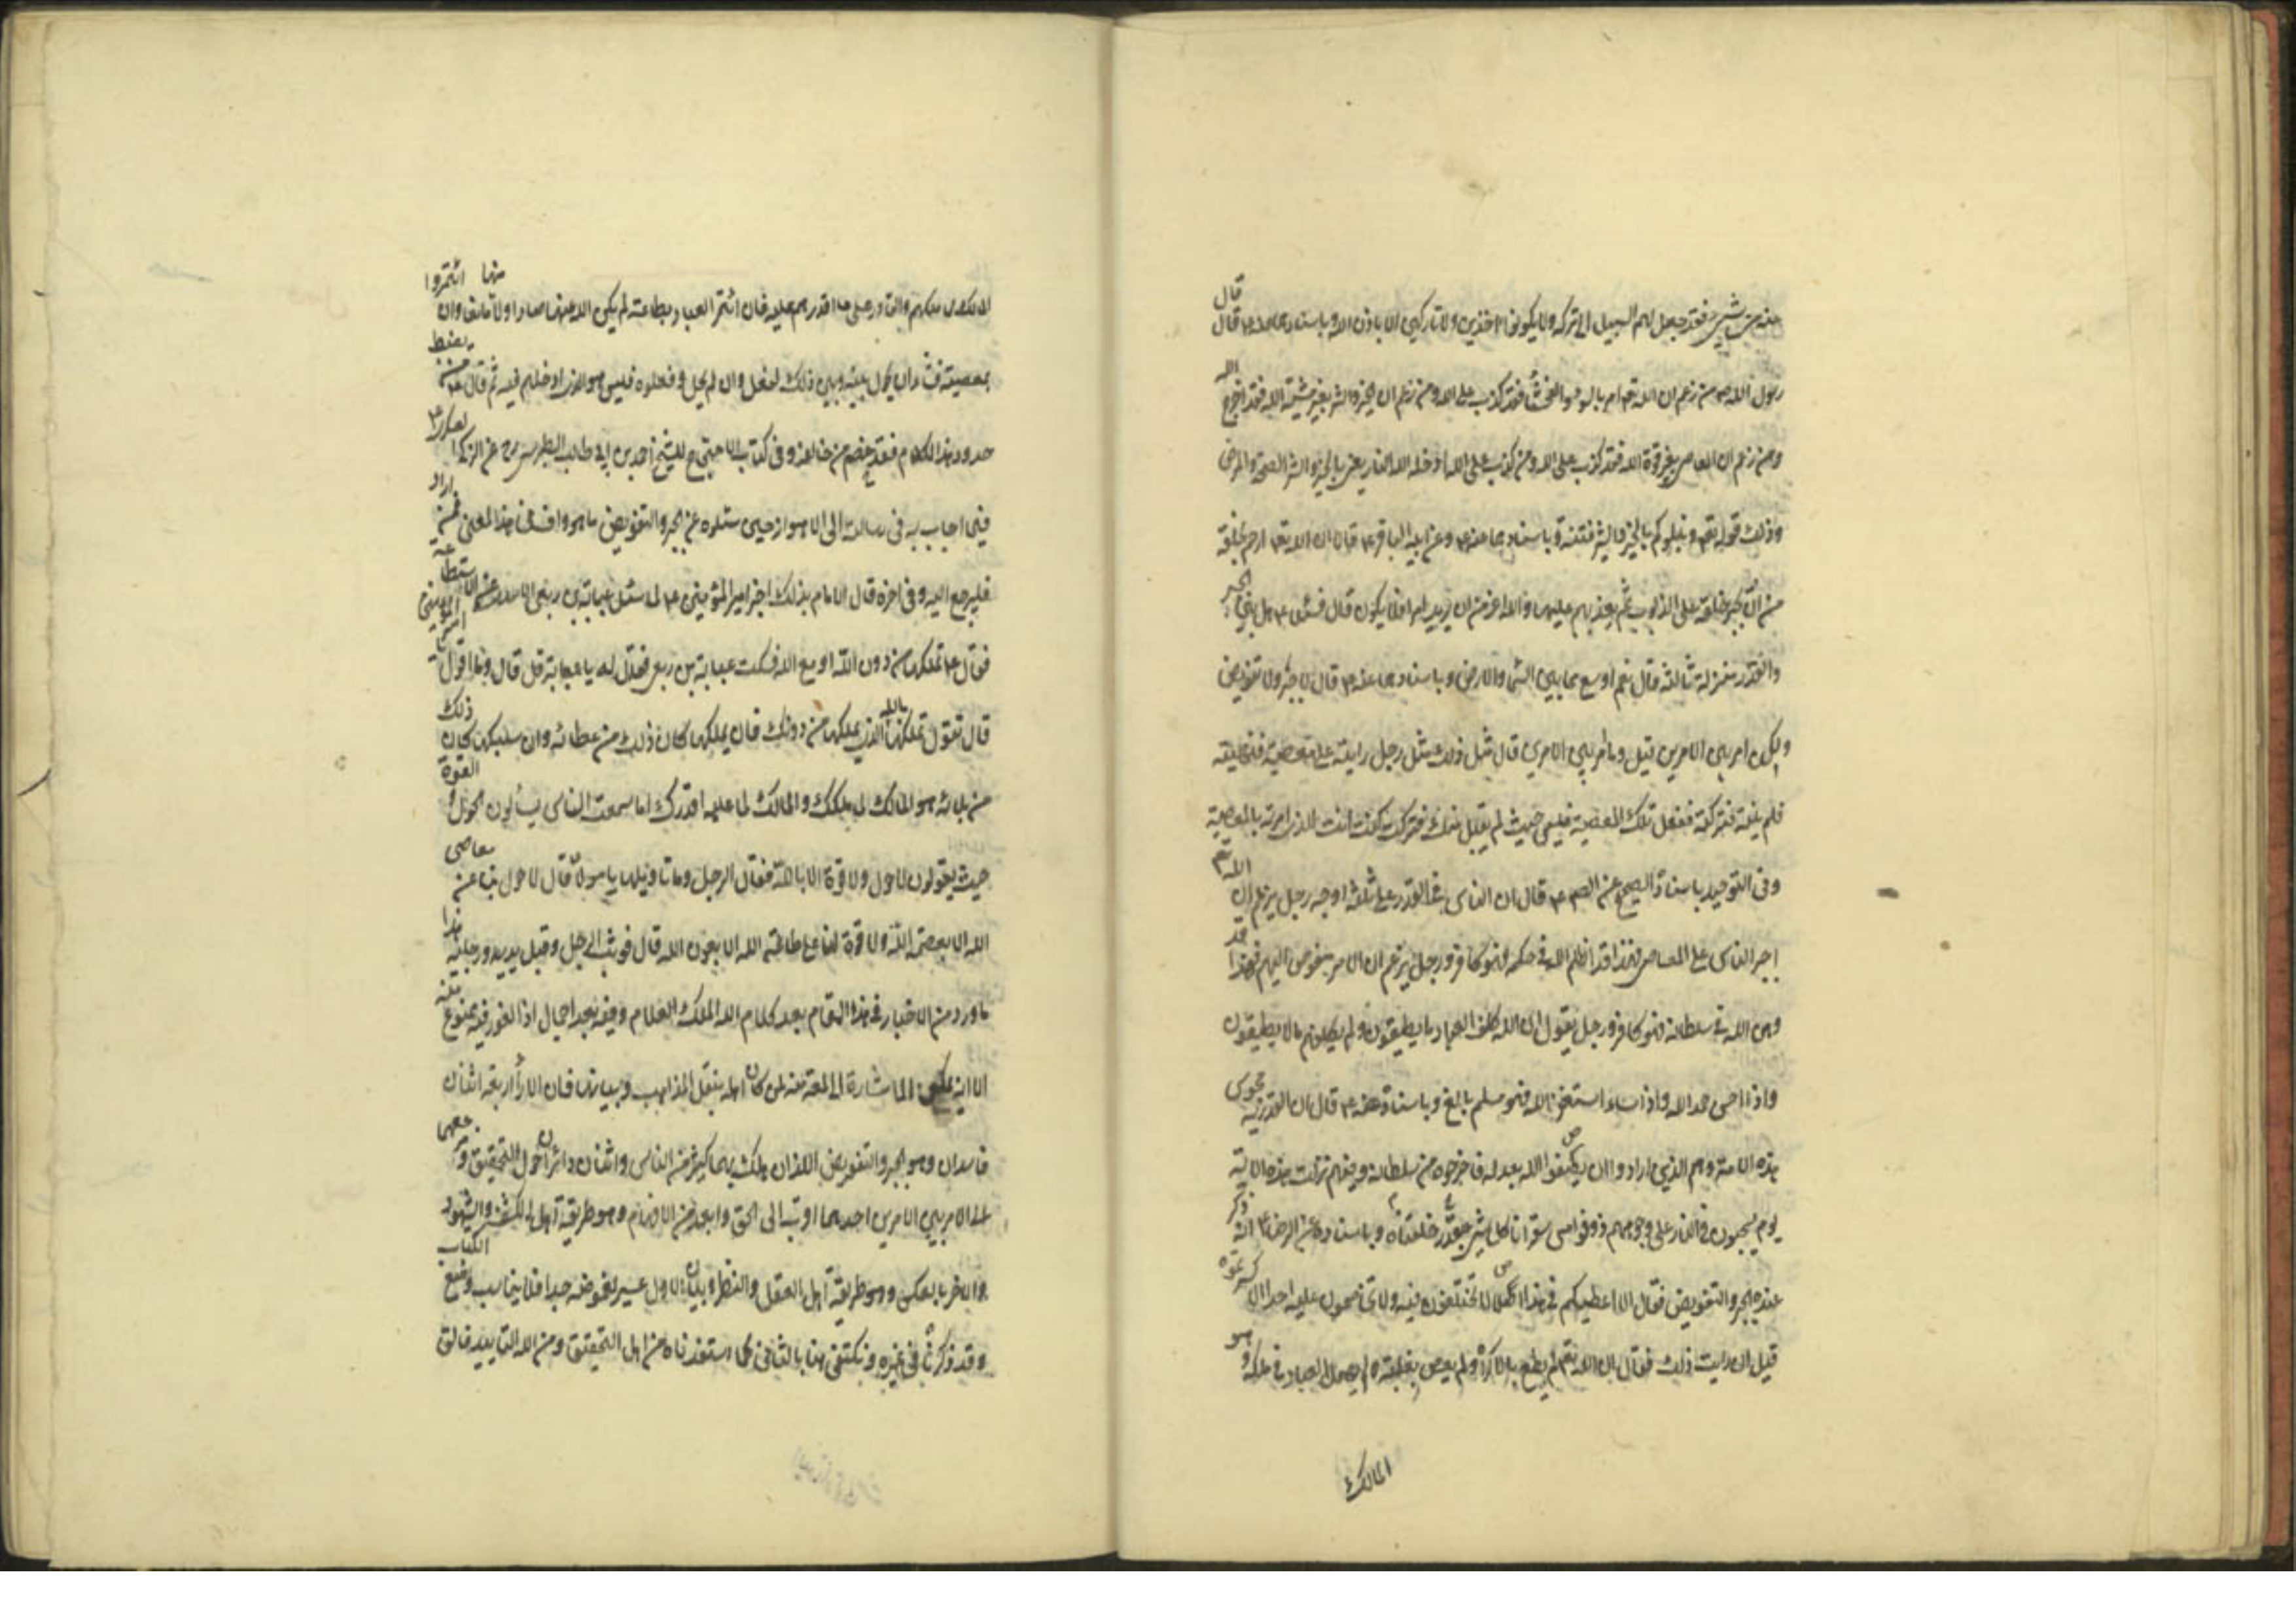 عنه من شيء فقد جعل لهم السبيل الى تركه ولا يكونوا اخذين ولا تاركين الا باذن الله وباسناده قال قال
رسول الله ص من زعم ان الله تع امر بالسوء والفحشاء فقد كذب على الله ومن زعم ان الخير والشر بغير مشية الله فقد اخرج الله
ومن زعم ان المعاصي بغير قوة الله فقد كذب على الله ومن كذب على الله ادخله الله النار يعنى بالخير والشر الصحة والمرض
وذلك قوله تع ونبلوكم بالخير والشر فتنة وباسنادهما عنه وعن ابيه الباقر ع قالا ان الله تع ارحم بخلقه
من ان يجبر خلقه على الذنوب ثم يعذبهم عليها والله اعز من ان يريد امرا فلا يكون قال فسئلا ع هل بين الجبر
والقدر منزلة ثالثة قال نعم اوسع مما بين السماء والارض وباسنادهما عنه ع قال لا جبر ولا تفويض
ولكن امر بين الامرين قيل وما امر بين الامرين قال مثل ذلك مثل رجل رايته على معصية فنهيته
فلم ينته فتركته ففعل تلك المعصية فليس حيث لم يقبل منك فتركته كنت انت الذى امرته بالمعصية
وفى التوحيد باسناده الصحيح عن الصم ع قال ان الناس فى القدر على ثلثة اوجه رجل يزعم ان الله تع
اجبر الناس على المعاصى فهذا قد اظلم الله فى حكمه فهو كافر ورجل يزعم ان الامر مفوض اليهم فهذا قد
وهن الله فى سلطانه فهو كافر ورجل يقول ان الله كلف العباد ما يطيقون ولم يكلفهم ما لا يطيقون
واذا احسن حمد الله واذا اساء استغفر الله فهو مسلم بالغ وباسناده عنه ع قال ان القدرية مجوس
هذه الامة وهم الذين ارادوا ان يصفوا الله بعدله فاخرجوه من سلطانه وفيهم نزلت هذه الاية
يوم يسحبون فى النار على وجوههم ذوقوا مس سقر انا كل شىء خلقناه بقدر وباسناده عن الرضا ع انه ذكر
عنده الجبر والتفويض فقال الا اعطيكم فى هذا اصلا لا تختلفون فيه ولا تخاصمون عليه احدا الا كسرتموه
قيل ان رايت ذلك فقال ان الله تع لم يطع بالاكراه ولم يعص بغلبة ولم يهمل العباد فى ملكه وهو
المالك
المالك لما ملكهم والقادر على ما اقدرهم عليه فان ائتمر العباد بطاعته لم يكن الله عنها صادا ولا منها مانعا وان ائتمروا
بمعصيته فشاء ان يحول بينهم وبين ذلك لفعل وان لم يحل وفعلوه فليس هو الذى ادخلهم فيه ثم قال ع من يضبط
حدود هذا الكلام فقد خصم من خالفه وفى كتاب الاحتجاج للشيخ احمد بن ابى طالب الطبرسى رح عن الزكى العسكرى ع
فيما اجاب به فى رسالته الى الاهواز حين سئلوه عن الجبر والتفويض ما هو واف فى هذا المعنى فمن اراد
فليرجع اليه وفى اخره قال الامام بذلك اخبر امير المؤمنين ع لما سئل عباية بن ربعى الاسدى عن الاستطاعة
فقال ع تملكها من دون الله او مع الله فسكت عباية بن ربعى فقال له يا عباية قل قال وما اقول يا امير المؤمنين
قال تقول تملكها بالله الذى يملكها من دونك فان يملكها كان ذلك من عطائه وان سلبكها كان ذلك
من بلائه هو المالك لما ملكك والمالك لما عليه اقدرك اما سمعت الناس يسألون الحول والقوة
حيث يقولون لا حول ولا قوة الا بالله فقال الرجل وما تاويلها يا مولاى قال لا حول بنا عن معاصى
الله الا بعصمة الله ولا قوة لنا على طاعة الله الا بعون الله قال فوثب الرجل وقبل يديه ورجليه هذا
ما ورد من الاخبار فى هذا المقام بعد كلام الله الملك العلام وفيه بعد اجمال اذ الغور فيه ممنوع منه
الا انه يمكن الاشارة الى لمعة منه لمن كان اهله بنقل المذاهب وبيانها فان الآراء اربعة اثنان
فاسدان وهو الجبر والتفويض اللذان هلك بهما كثير من الناس واثنان دائران حول التحقيق ومرجعهما
الى الامر بين الامرين احدهما اقرب الى الحق وابعد من الافهام وهو طريقة اهل الكشف والشهود
والاخر بالعكس وهو طريقة اهل العقل والنظر وبيان الاول عسير لغموضه جدا فلا يناسب وضع الكتاب
وقد ذكرناه فى غيره ونكتفى هنا بالثانى كما استفدناه من اهل التحقيق ومن الله التاييد فالق